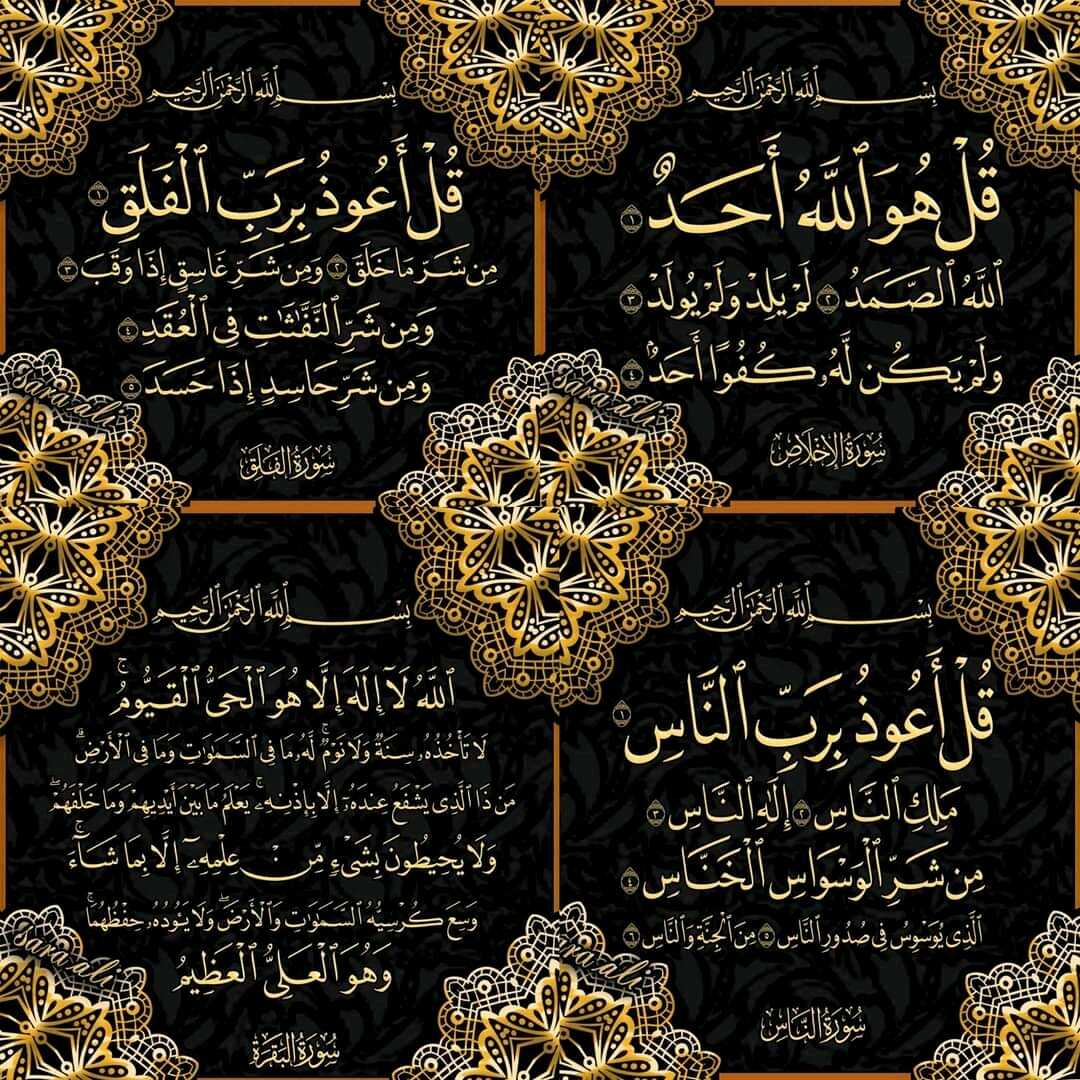 بِسْمِ ٱللَّهِ ٱلرَّحْمَٰنِ ٱلرَّحِيمِ
قُلْ هُوَ ٱللَّهُ أَحَدٌ ١
ٱللَّهُ ٱلصَّمَدُ ٢ لَمْ يَلِدْ وَلَمْ يُولَدْ ٣
وَلَمْ يَكُن لَّهُۥ كُفُوًا أَحَدٌۢ ٤
سُورَةُ الإِخْلَاصِ
بِسْمِ ٱللَّهِ ٱلرَّحْمَٰنِ ٱلرَّحِيمِ
قُلْ أَعُوذُ بِرَبِّ ٱلْفَلَقِ ١
مِن شَرِّ مَا خَلَقَ ٢ وَمِن شَرِّ غَاسِقٍ إِذَا وَقَبَ ٣
وَمِن شَرِّ ٱلنَّفَّٰثَٰتِ فِى ٱلْعُقَدِ ٤
وَمِن شَرِّ حَاسِدٍ إِذَا حَسَدَ ٥
سُورَةُ الفَلَقِ
بِسْمِ ٱللَّهِ ٱلرَّحْمَٰنِ ٱلرَّحِيمِ
قُلْ أَعُوذُ بِرَبِّ ٱلنَّاسِ ١
مَلِكِ ٱلنَّاسِ ٢ إِلَٰهِ ٱلنَّاسِ ٣
مِن شَرِّ ٱلْوَسْوَاسِ ٱلْخَنَّاسِ ٤
ٱلَّذِى يُوَسْوِسُ فِى صُدُورِ ٱلنَّاسِ ٥ مِنَ ٱلْجِنَّةِ وَٱلنَّاسِ ٦
سُورَةُ النَّاسِ
بِسْمِ ٱللَّهِ ٱلرَّحْمَٰنِ ٱلرَّحِيمِ
ٱللَّهُ لَآ إِلَٰهَ إِلَّا هُوَ ٱلْحَىُّ ٱلْقَيُّومُ ۚ
لَا تَأْخُذُهُۥ سِنَةٌ وَلَا نَوْمٌ ۚ لَّهُۥ مَا فِى ٱلسَّمَٰوَٰتِ وَمَا فِى ٱلْأَرْضِ ۗ
مَن ذَا ٱلَّذِى يَشْفَعُ عِندَهُۥٓ إِلَّا بِإِذْنِهِۦ ۚ يَعْلَمُ مَا بَيْنَ أَيْدِيهِمْ وَمَا خَلْفَهُمْ ۖ
وَلَا يُحِيطُونَ بِشَىْءٍ مِّنْ عِلْمِهِۦٓ إِلَّا بِمَا شَآءَ ۚ
وَسِعَ كُرْسِيُّهُ ٱلسَّمَٰوَٰتِ وَٱلْأَرْضَ ۖ وَلَا يَـُٔودُهُۥ حِفْظُهُمَا ۚ
وَهُوَ ٱلْعَلِىُّ ٱلْعَظِيمُ
سُورَةُ البَقَرَةِ